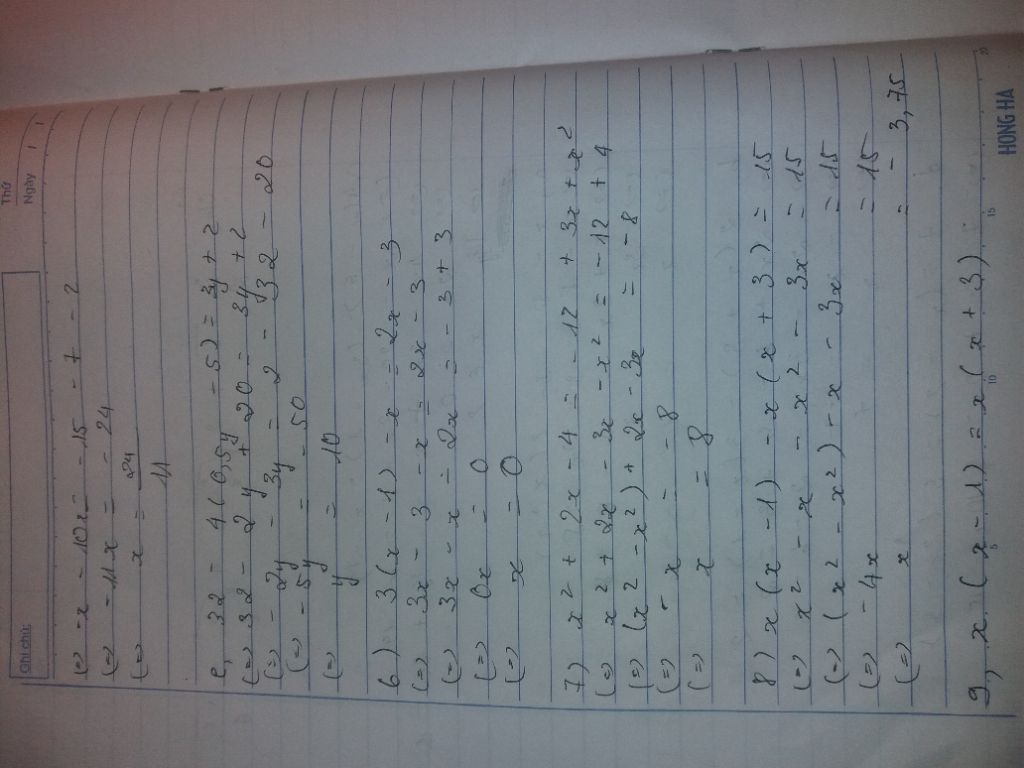 Ghi chú:
Thứ
Ngày
(=) -x - 10x = -15 - 7 - 2
(=) -11x = -24
(=) x = 24
11
e, 32 - 4(0,5y - 5) = 3y + 2
(=) 32 - 2y + 20 = 3y + 2
(=) - 2y - 3y = 2 - 32 - 20
(=) - 5y = - 50
(=) y = 10
6) 3(x - 1) - x = 2x - 3
(=) 3x - 3 - x = 2x - 3
(=) 3x - x - 2x = - 3 + 3
(=) 0x = 0
(=) x = 0
7) x² + 2x - 4 = - 12 + 3x + x²
(=) x² + 2x - 3x - x² = - 12 + 4
(=) (x² - x²) + 2x - 3x = - 8
(=) - x = - 8
(=) x = 8
8) x(x - 1) - x(x + 3) = 15
(=) x² - x - x² - 3x = 15
(=) (x² - x²) - x - 3x = 15
(=) - 4x = 15
(=) x = - 3,75
9, x(x - 1) = x(x + 3)
5 10 15 20
HONG HA